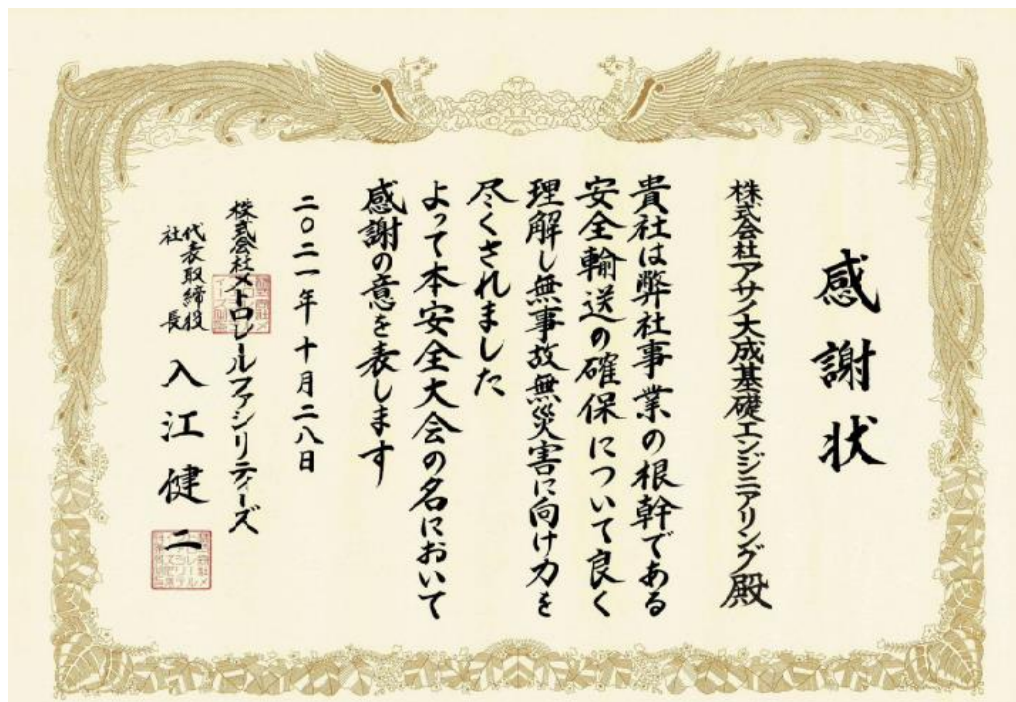 感謝状
株式会社アサノ大成基礎エンジニアリング殿
貴社は弊社事業の根幹である
安全輸送の確保について良く
理解し無事故無災害に向け力を
尽くされました
よって本安全大会の名において
感謝の意を表します
二〇二一年十月二八日
株式会社メトロレールファシリティーズ
代表取締役
社長
入江健二